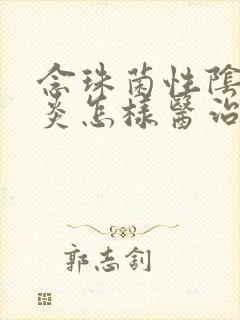 念珠菌性陰
炎怎樣醫治
郭志釗